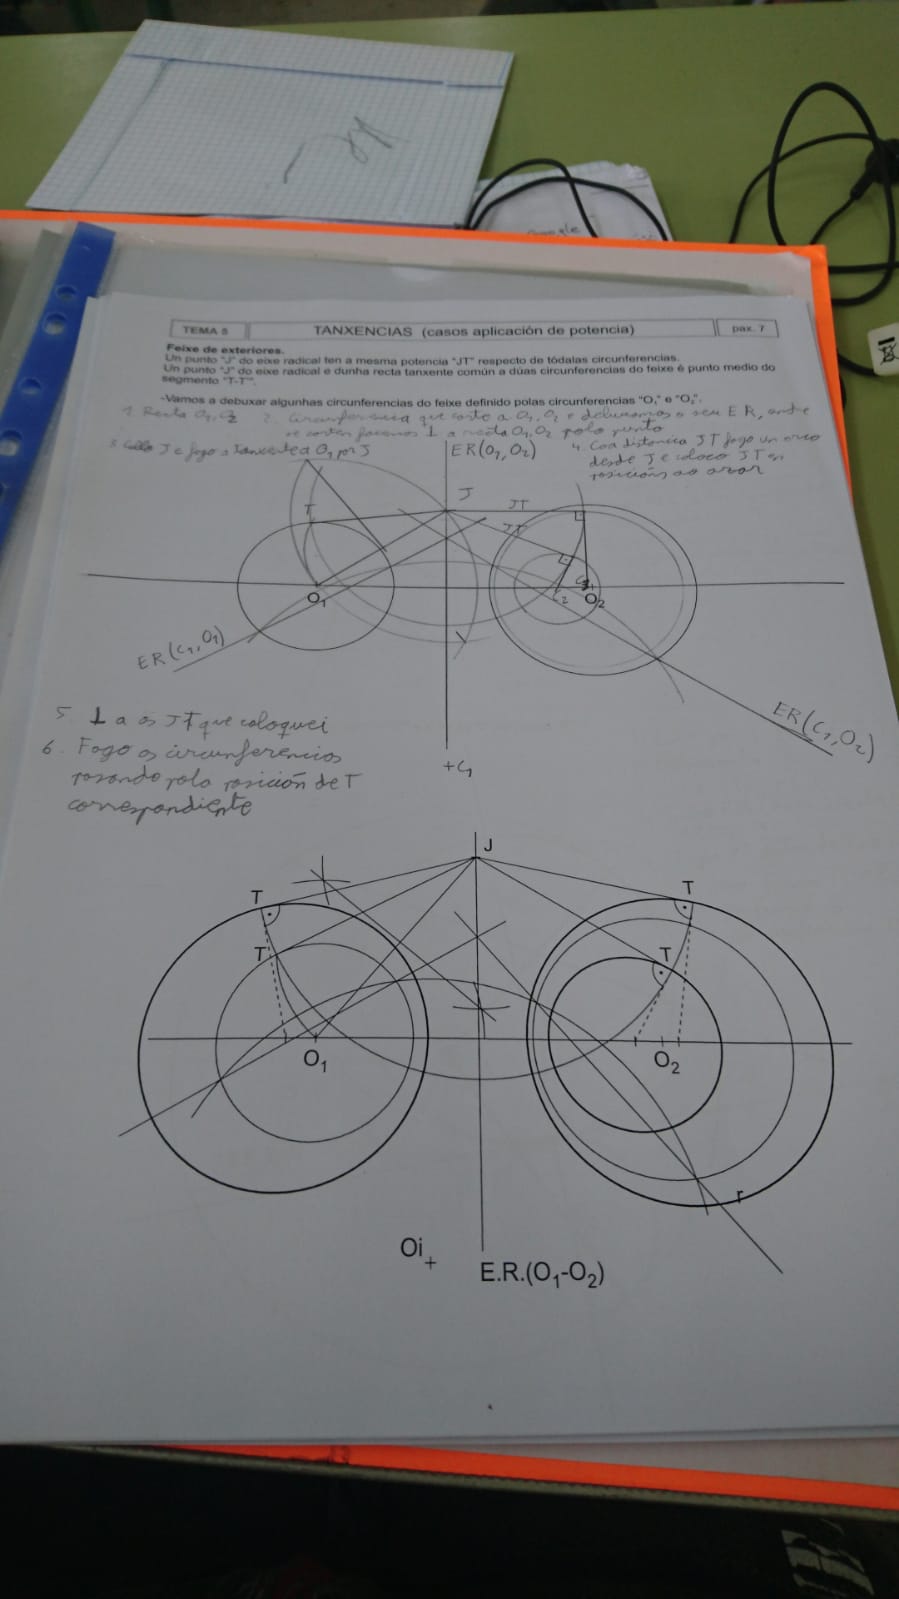 Google
TEMA 5
TANXENCIAS (casos aplicación de potencia)
pax. 7
Feixe de exteriores.
Un punto "J" do eixe radical ten a mesma potencia "JT" respecto de tódalas circunferencias.
Un punto "J" do eixe radical e dunha recta tanxente común a dúas circunferencias do feixe é punto medio do
segmento "T-T'".
-Vamos a debuxar algunhas circunferencias do feixe definido polas circunferencias "O₁" e "O₂".
1. Recta O₁, O₂ 2. Circunferencia que corte a O₁, O₂ e debuxamos o seu ER, onde
se corten facemos ⊥ a recta O₁ O₂ polo punto
3. Collo J e fago a tanxente a O₁ por J
ER(O₁, O₂)
4. Coa distancia JT fago un arco
desde J e coloco JT en
posicións ao azar
J
JT
T
JT
O₁
C₂
O₂
ER(C₁, O₁)
ER(C₁, O₂)
+C₁
5. ⊥ a os JT que coloquei
6. Fago as circunferencias
pasando pola posición de T
correspondiente
J
T
T
T
T
O₁
O₂
r
Oi
+
E.R.(O₁-O₂)